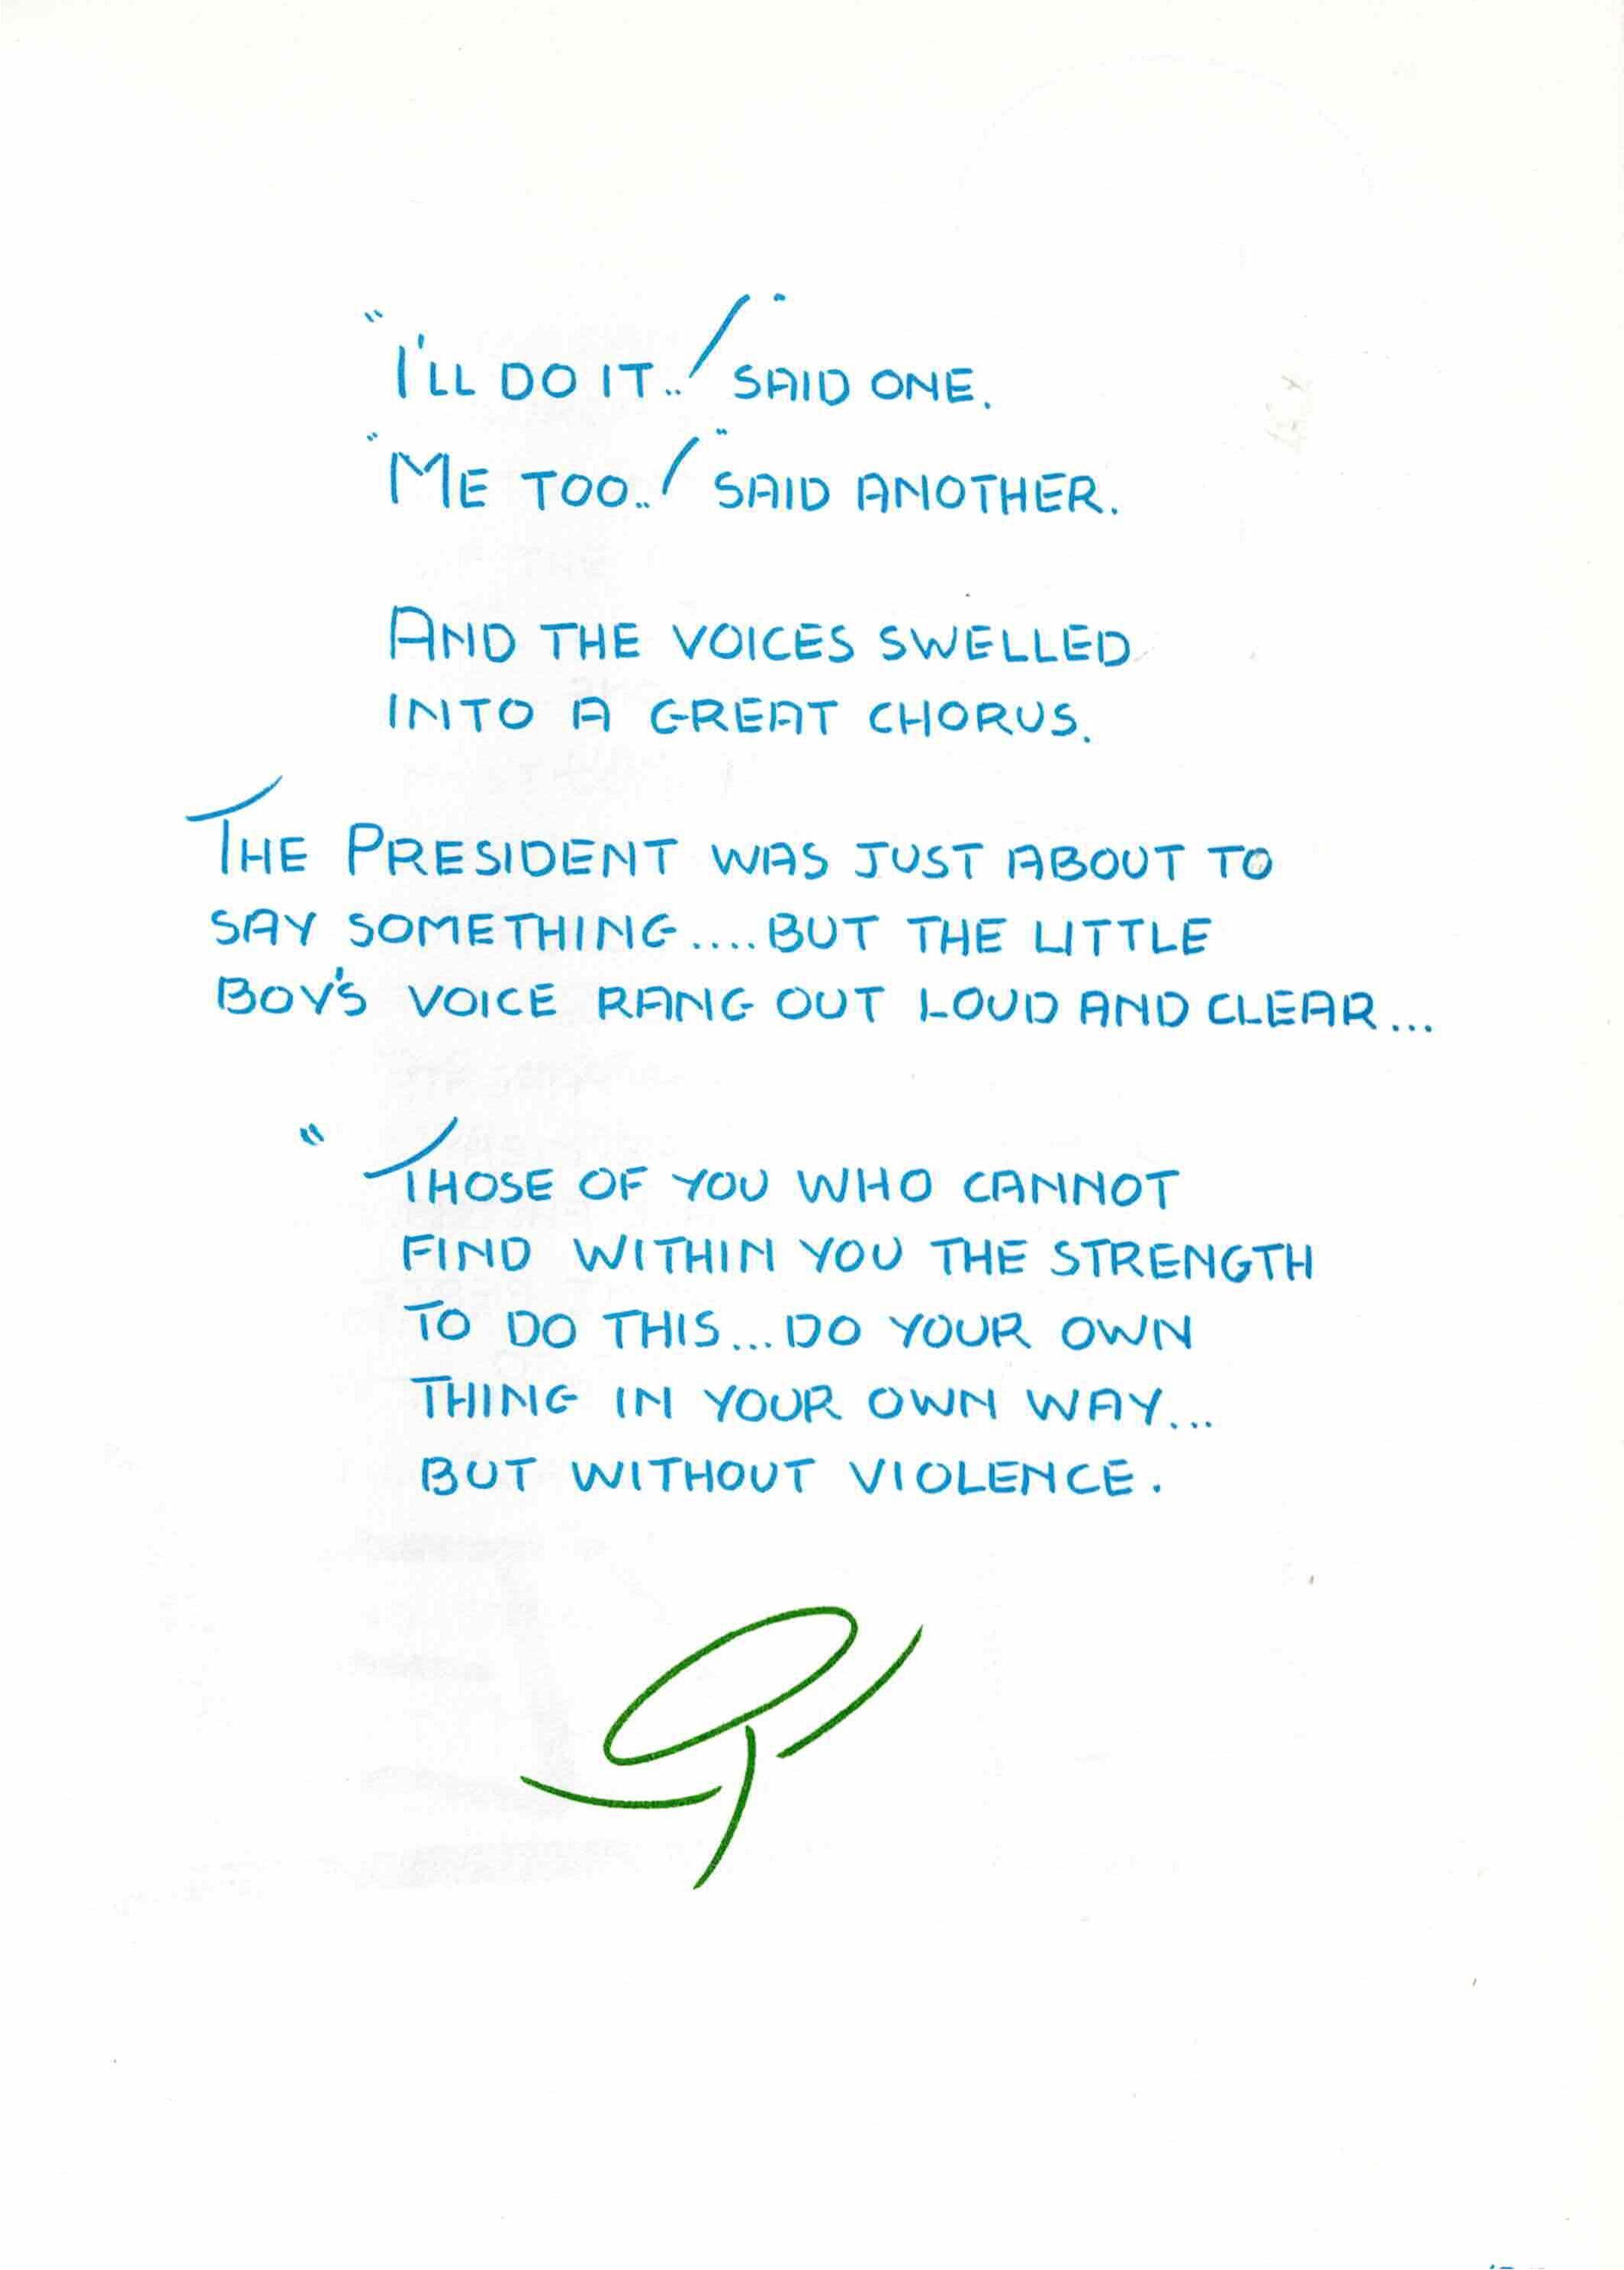 "I'LL DO IT..!" SAID ONE.
"ME TOO..!" SAID ANOTHER.
AND THE VOICES SWELLED
INTO A GREAT CHORUS.
THE PRESIDENT WAS JUST ABOUT TO
SAY SOMETHING....BUT THE LITTLE
BOY'S VOICE RANG OUT LOUD AND CLEAR...
"THOSE OF YOU WHO CANNOT
FIND WITHIN YOU THE STRENGTH
TO DO THIS...DO YOUR OWN
THING IN YOUR OWN WAY...
BUT WITHOUT VIOLENCE.